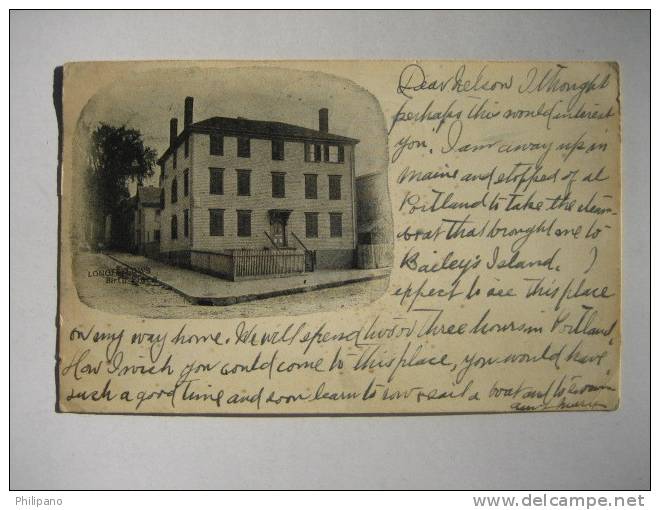 Dear Nelson I thought
perhaps this would interest
you. I am away up in
Maine and stopped of at
Portland to take the steam-
boat that brought me to
Bailey's Island. I
expect to see this place
on my way home. We will spend two or three hours in Portland.
How I wish you could come to this place, you would have
such a good time and soon learn to row & sail a boat and to swim
Aunt Mary
LONGFELLOW'S
Birth Place
Philipano
www.delcampe.net